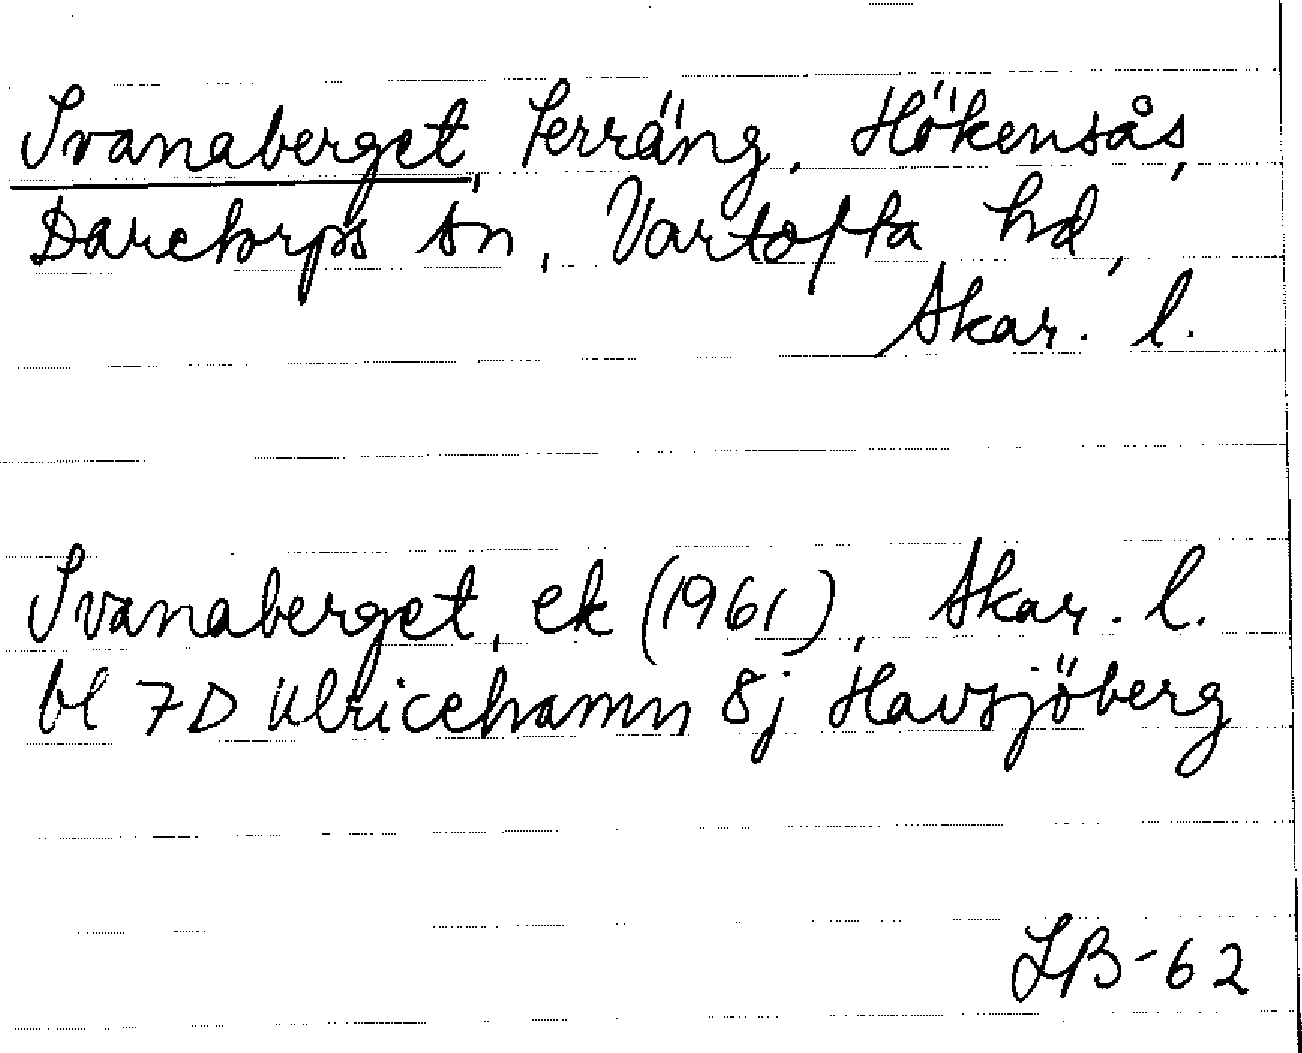 Svanaberget, Terräng, Hökensås,
Daretorps sn, Vartofta hd,
Skar. l.
Svanaberget, ek (1961), Skar. l.
bl 7D Ulricehamn 8j Havsjöberg
LB-62